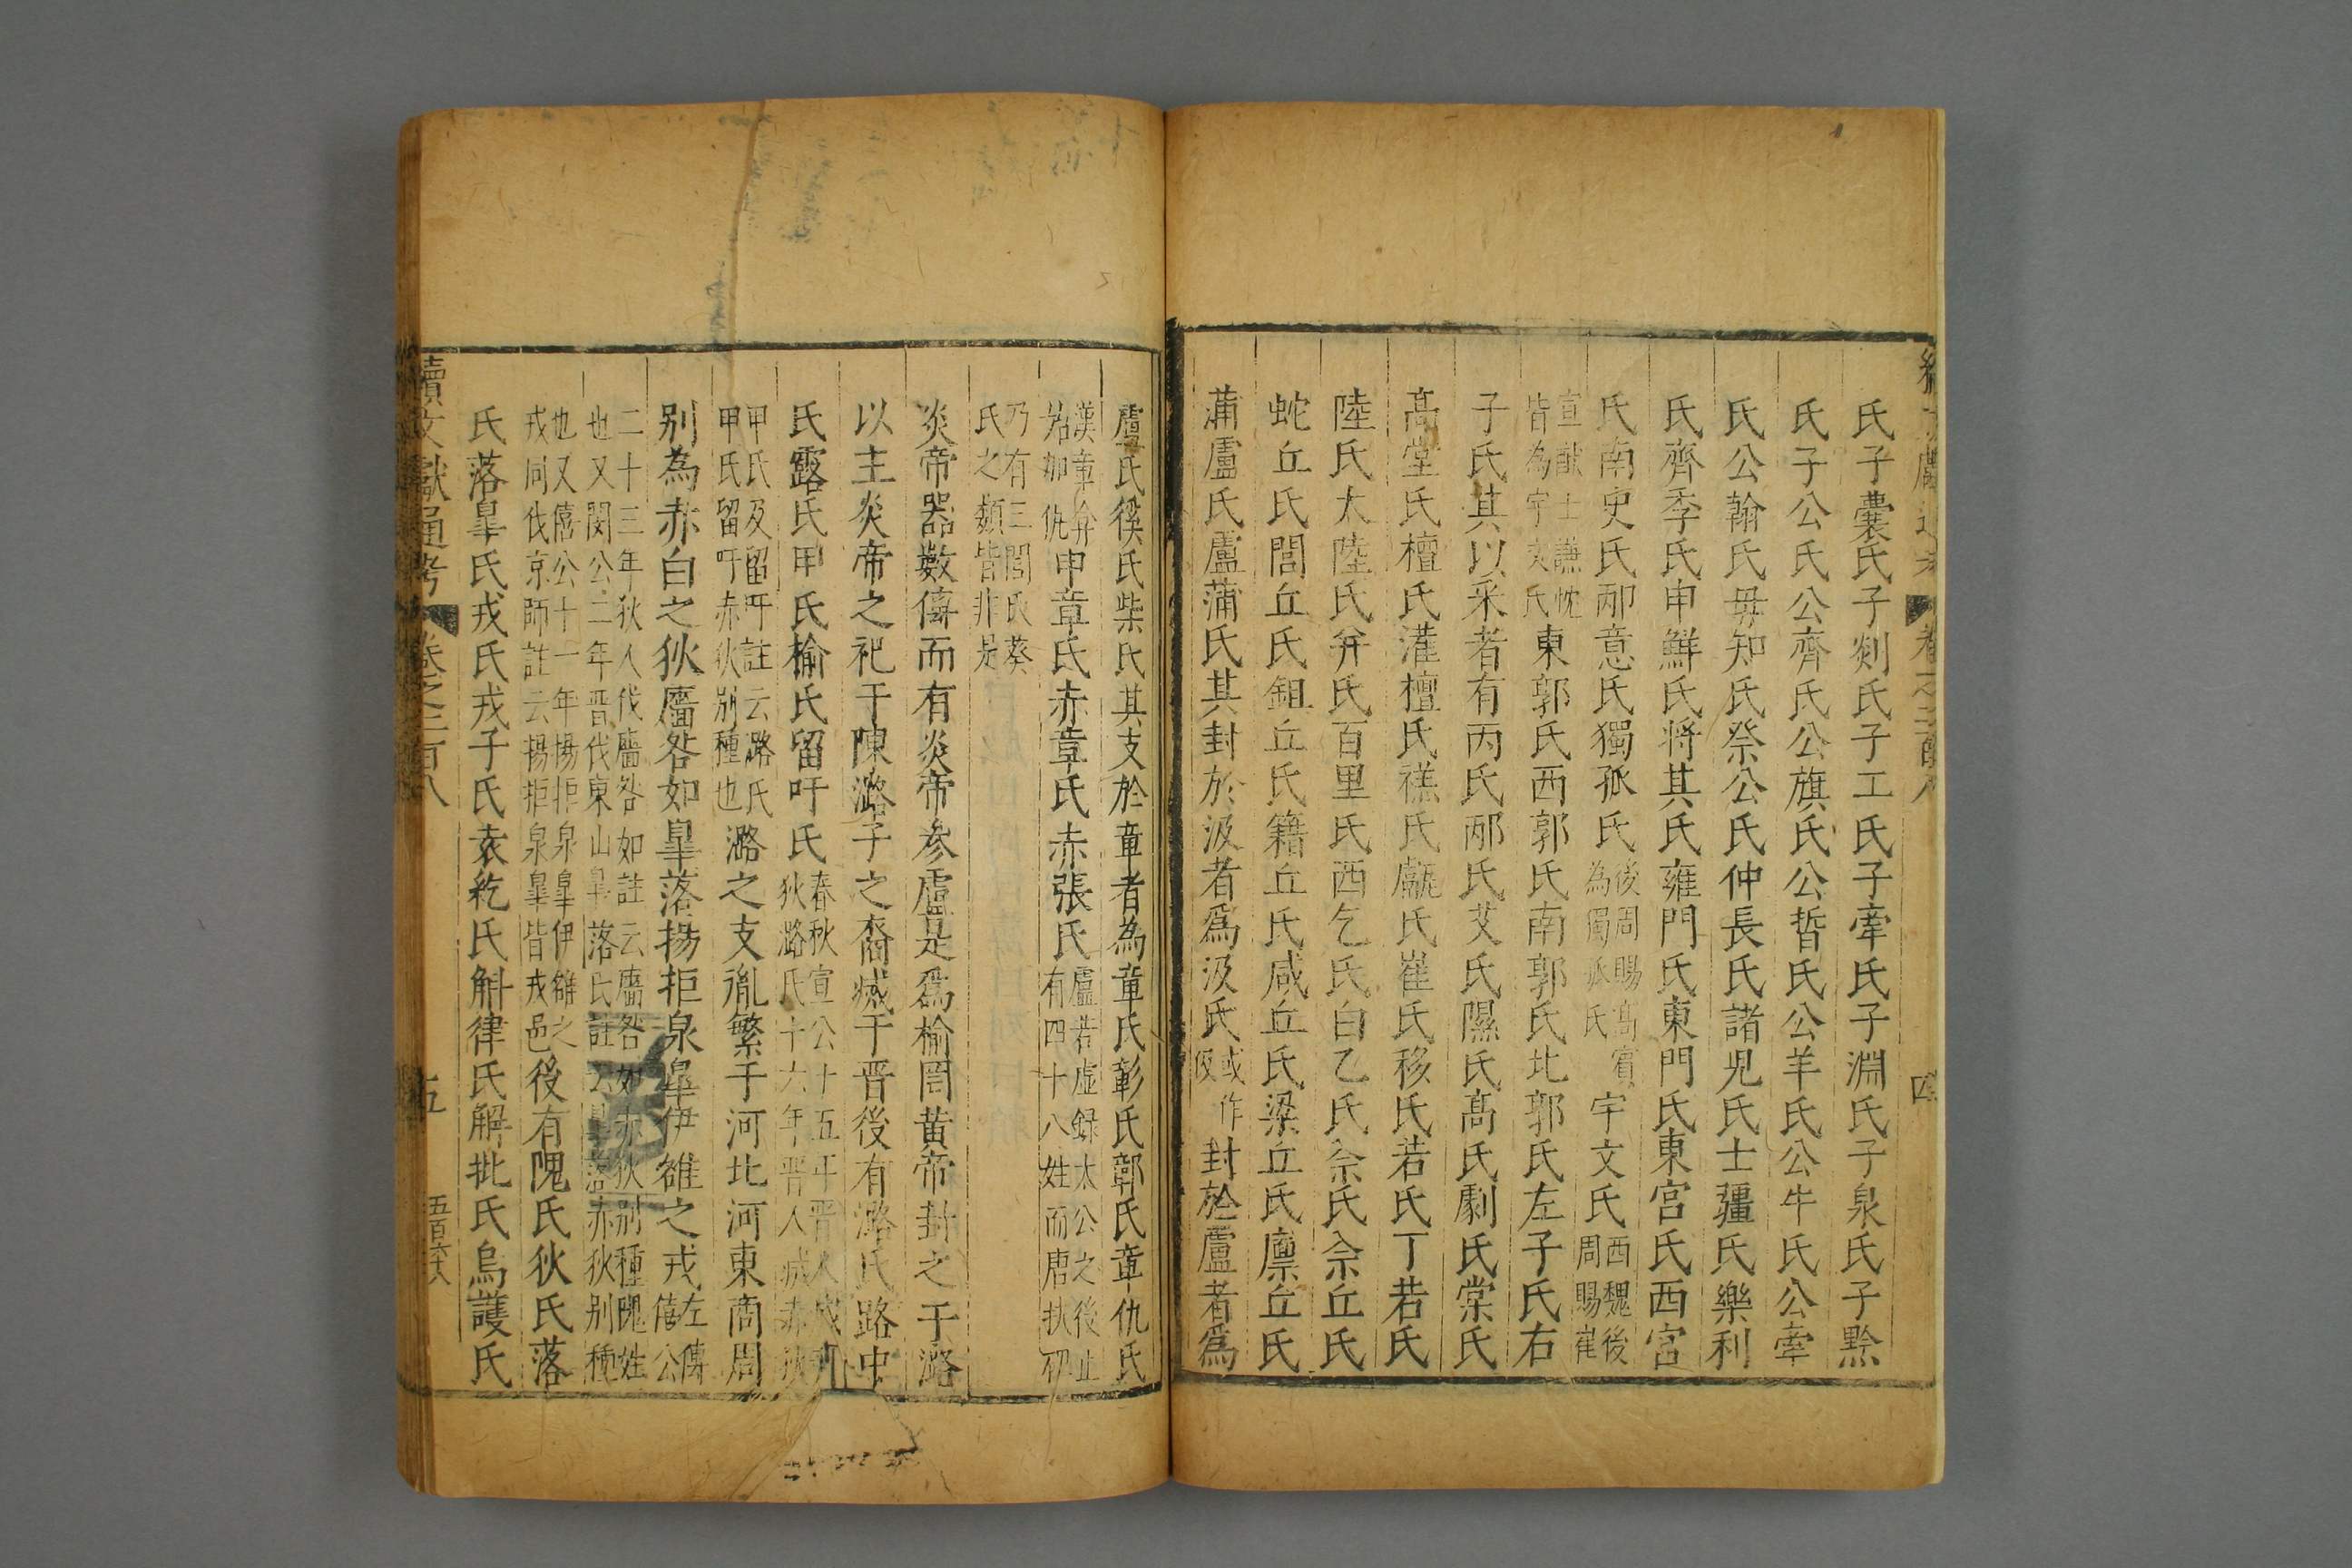 氏子囊氏子剡氏子工氏子牽氏子淵氏子泉氏子黔
氏子公氏公齊氏公旗氏公晳氏公羊氏公牛氏公牽
氏公翰氏毋知氏祭公氏仲長氏諸児氏士疆氏樂利
氏齊季氏申鮮氏將其氏雍門氏東門氏東宮氏西宮
氏南史氏邴意氏獨孤氏後周賜高賓為獨孤氏宇文氏西魏後周賜崔
宣猷士謙忱皆為宇文氏東郭氏西郭氏南郭氏北郭氏左子氏右
子氏其以采者有丙氏邴氏艾氏隰氏高氏劇氏棠氏
高堂氏檀氏灌檀氏禚氏甗氏崔氏移氏若氏丁若氏
陸氏太陸氏弁氏百里氏西乞氏白乙氏佘氏佘丘氏
蛇丘氏閭丘氏鉏丘氏籍丘氏咸丘氏梁丘氏廪丘氏
蒲盧氏盧蒲氏其封於汲者爲汲氏或作伋封於盧者爲
盧氏徯氏柴氏其支於章者為章氏彰氏鄣氏章仇氏
漢章弇始加仇申章氏赤章氏赤張氏盧若虛録太公之後止有四十八姓而唐扶初
乃有三閭氏葵氏之類皆非是
炎帝器數傳而有炎帝参盧是爲榆罔黄帝封之于潞
以主炎帝之祀于陳潞子之裔滅于晋後有潞氏路中
氏露氏甲氏榆氏留吁氏春秋宣公十五年晋人滅赤狄潞氏十六年晋人滅赤狄
甲氏及留吁註云潞氏甲氏留吁赤狄别種也潞之支胤繁于河北河東商周
别為赤白之狄廧咎如皐落揚拒泉皐伊雒之戎左傳僖公
二十三年狄人伐廧咎如註云廧咎如赤狄别種隗姓也又閔公二年晋伐東山皐落氏註云皐落赤狄别種
也又僖公十一年揚拒泉皐伊雒之戎同伐京師註云揚拒泉皐皆戎邑後有隗氏狄氏落
氏落皐氏戎氏戎子氏袁紇氏斛律氏解批氏烏護氏
續文獻通考
卷之二百八
五
五百六十八